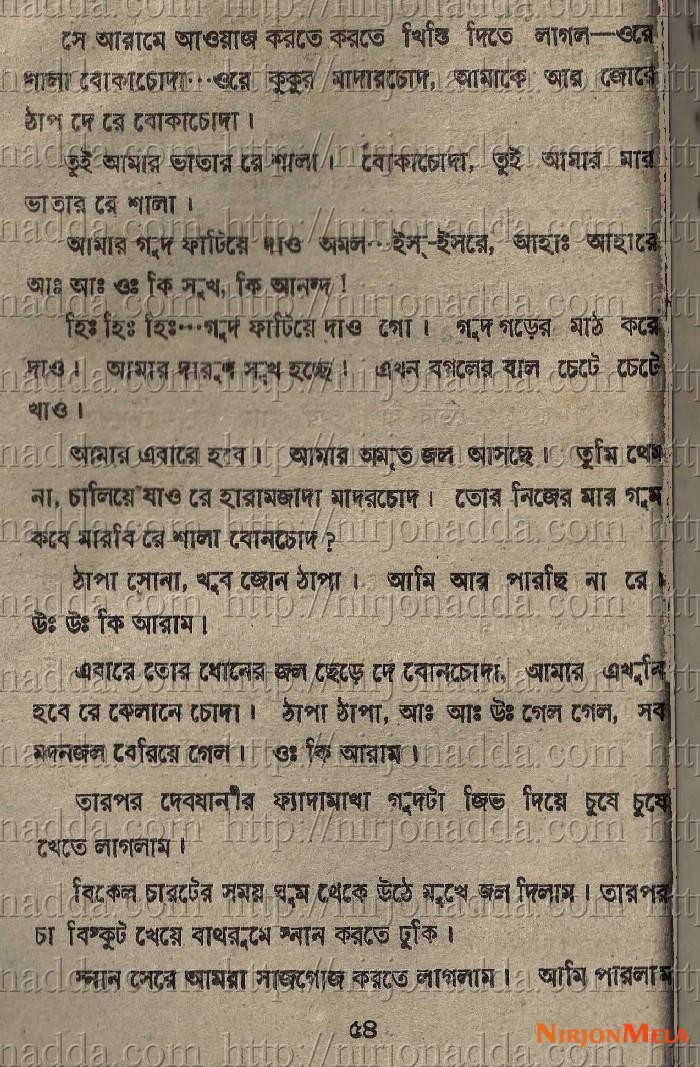 সে আরামে আওয়াজ করতে করতে খিস্তি দিতে লাগল—ওরে
শালা বোকাচোদা···ওরে কুকুর মাদারচোদ, আমাকে আর জোরে
ঠাপ দে রে বোকাচোদা।
তুই আমার ভাতার রে শালা। বোকাচোদা, তুই আমার মার
ভাতার রে শালা।
আমার গুদ ফাটিয়ে দাও অমল···ইস্-ইসরে, আহাঃ আহারে
আঃ আঃ ওঃ কি সুখ, কি আনন্দ!
হিঃ হিঃ হিঃ···গুদ ফাটিয়ে দাও গো। গুদ গড়ের মাঠ করে
দাও। আমার দারুণ সুখ হচ্ছে। এখন বগলের বাল চেটে চেটে
খাও।
আমার এবারে হবে। আমার অমৃত জল আসছে। তুমি থেম
না, চালিয়ে যাও রে হারামজাদা মাদরচোদ। তোর নিজের মার গুদ
কবে মারবি রে শালা বোনচোদ?
ঠাপা সোনা, খুব জোন ঠাপা। আমি আর পারছি না রে।
উঃ উঃ কি আরাম।
এবারে তোর ধোনের জল ছেড়ে দে বোনচোদা, আমার এখুনি
হবে রে কেলানে চোদা। ঠাপা ঠাপা, আঃ আঃ উঃ গেল গেল, সব
মদনজল বেরিয়ে গেল। ওঃ কি আরাম।
তারপর দেবযানীর ফ্যাদামাখা গুদটা জিভ দিয়ে চুষে চুষে
খেতে লাগলাম।
বিকেল চারটের সময় ঘুম থেকে উঠে মুখে জল দিলাম। তারপর
চা বিস্কুট খেয়ে বাথরুমে স্নান করতে ঢুকি।
স্নান সেরে আমরা সাজগোজ করতে লাগলাম। আমি পারলাম
৫৪
NIRJONMELA
http://nirjonadda.com